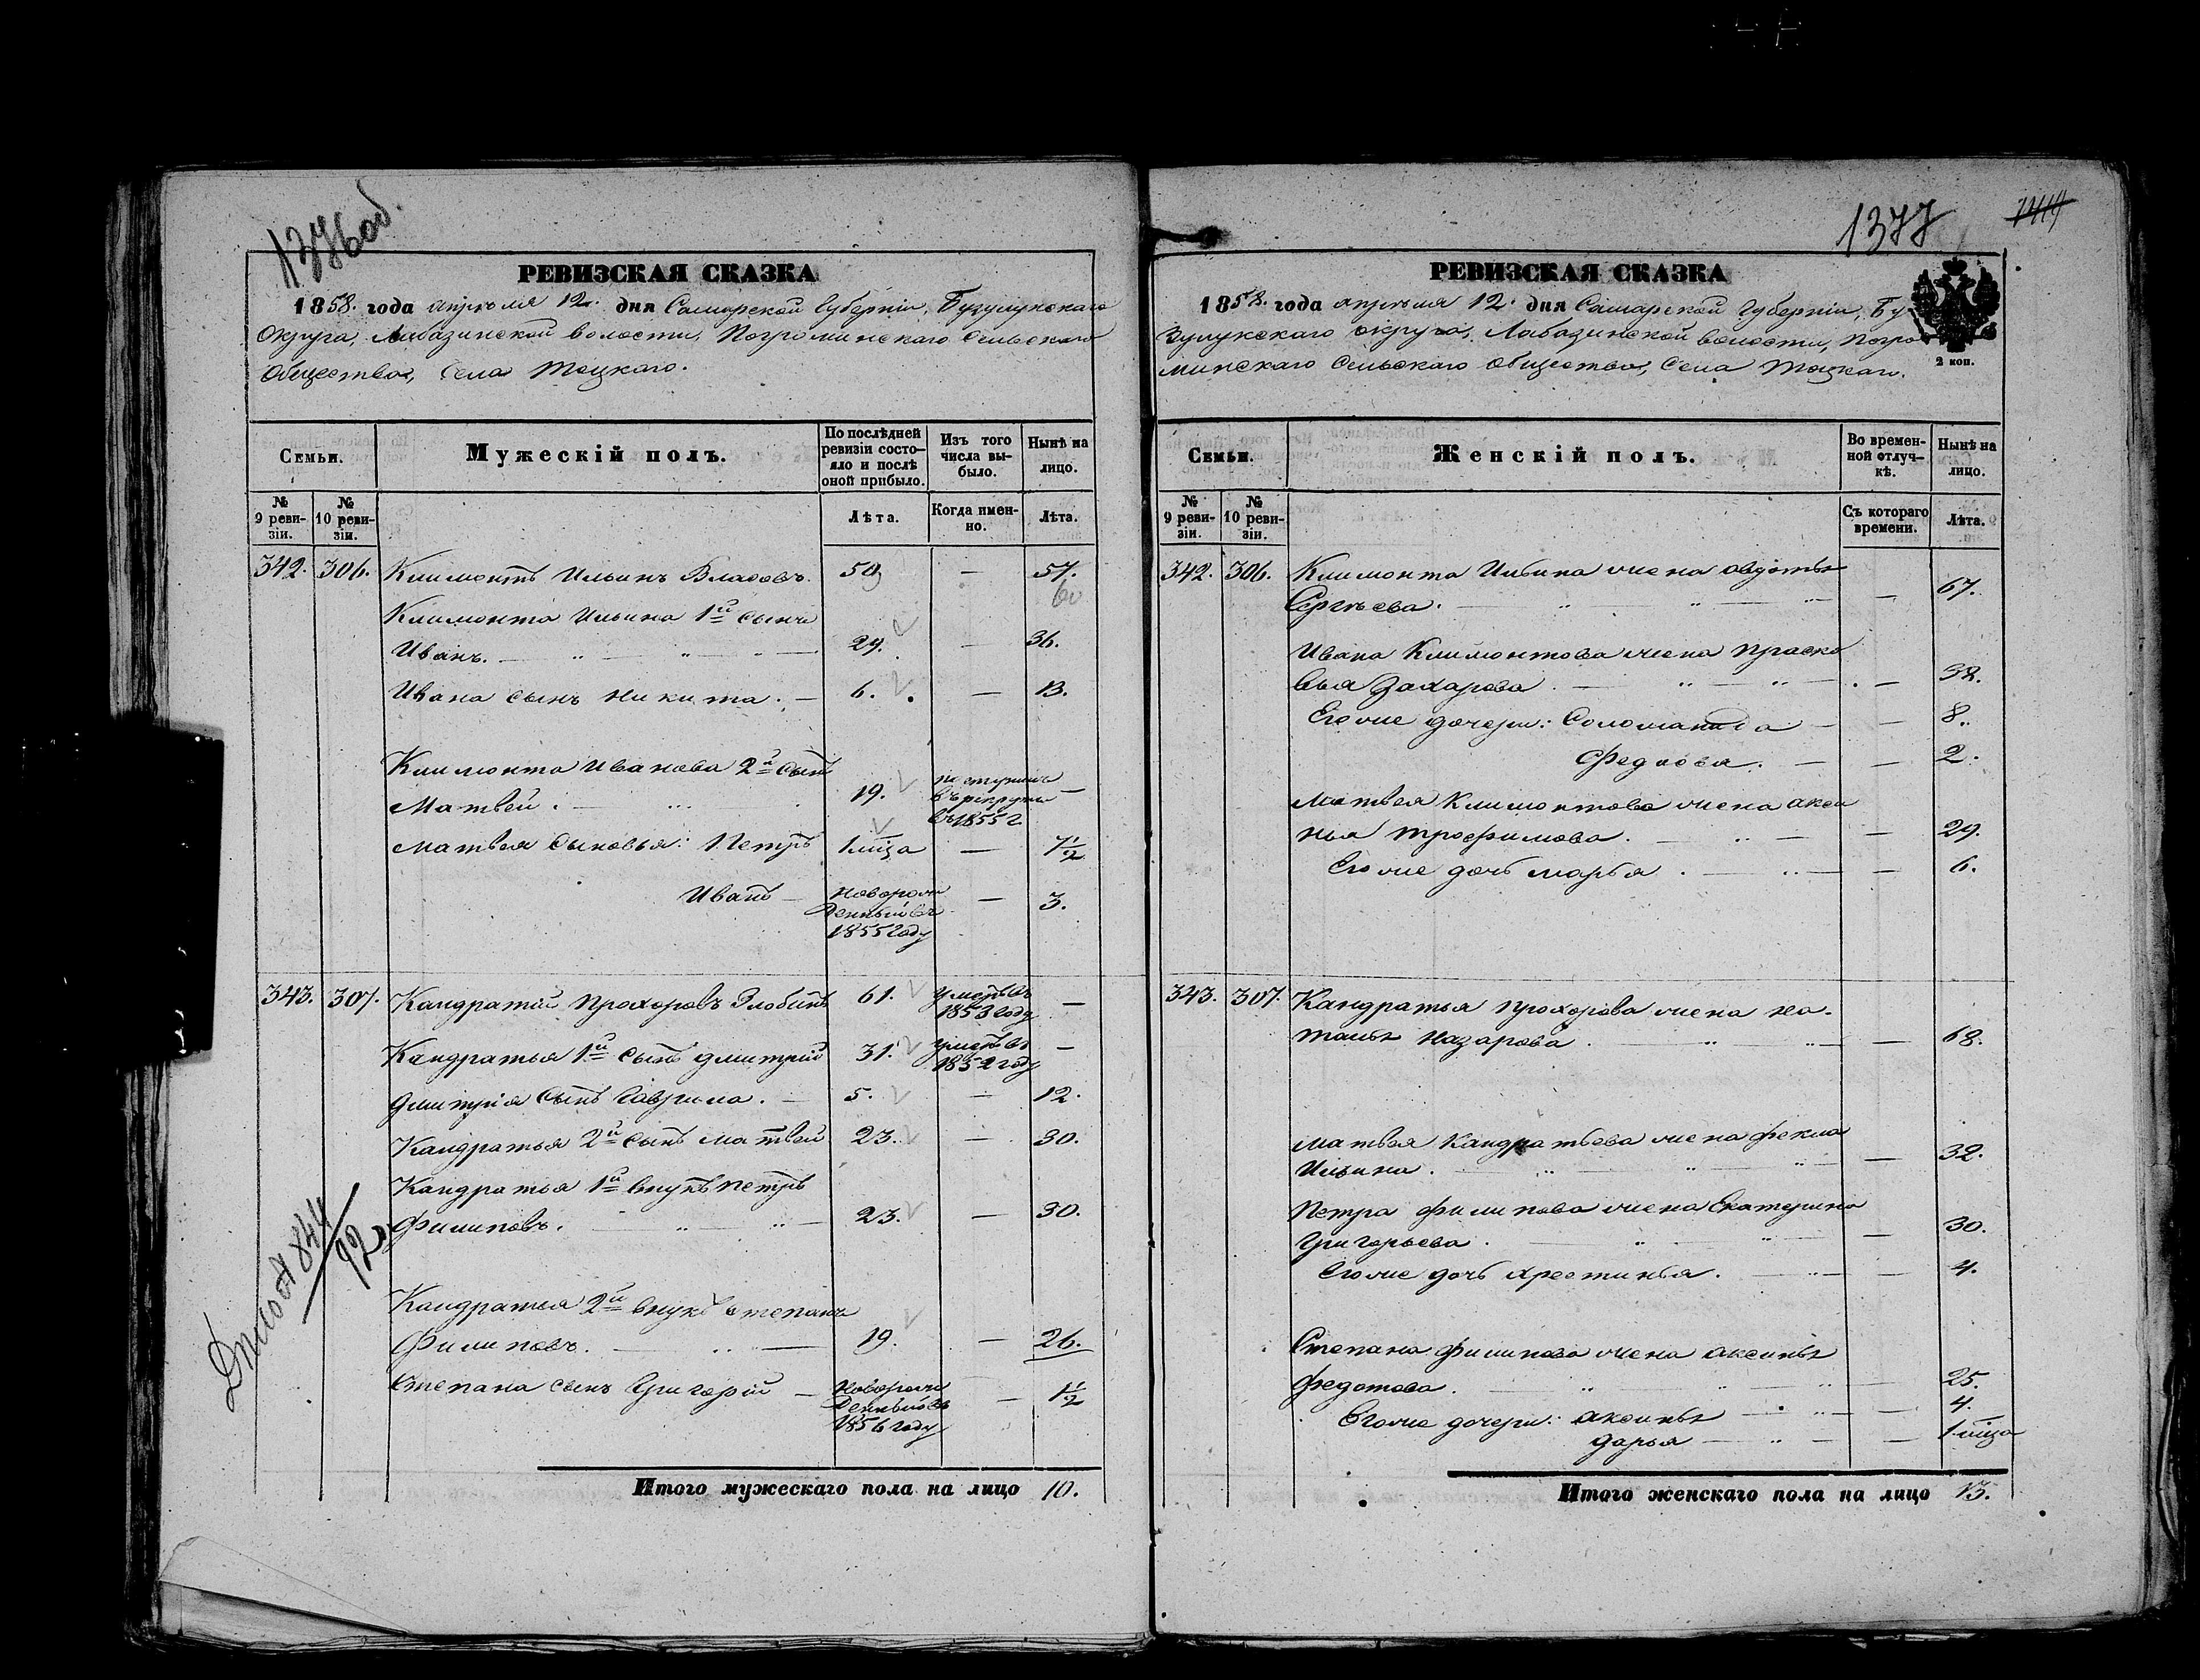 1376 об.
РЕВИЗСКАЯ СКАЗКА
1858. года апреля 12. дня Самарской Губерніи, Бузулукскаго
Округа, Лабазинской волости, Погроминскаго Сельскаго
Общества, Села Тоцкаго.
Семьи.
Мужескій полъ.
По послѣдней
ревизіи состо-
яло и послѣ
оной прибыло.
Изъ того
числа вы-
было.
Нынѣ на
лицо.
№
9 реви-
зіи.
№
10 реви-
зіи.
Лѣта.
Когда имен-
но.
Лѣта.
342. 306. Климонтъ Ильинъ Власовъ. 50 — 57.
60
Климонта Ильина 1й сынъ
Иванъ. — 29. — 36.
Ивана сынъ Никита. — 6. — 13.
Климонта Иванова 2й сынъ
Матвей. — 19. поступилъ въ рекруты въ 1855 г. —
Матвея сыновья: Петръ 1 мца — 7½
Иванъ — Новорожденный въ 1855 году — 3.
343. 307. Кандратій Прохоровъ Злобинъ 61. умеръ въ 1853 году —
Кандратья 1й сынъ Дмитрий 31. умеръ въ 1852 году —
Дмитрія сынъ Гаврила. — 5. — 12.
Кандратья 2й сынъ Матвей 23. — 30.
Кандратья 1й внукъ Петръ
Филиповъ. — 23. — 30.
Кандратья 2й внукъ Степанъ
Филиповъ. — 19. — 26.
Степана сынъ Григорій — Новорожденный въ 1856 году — 1½
844
92
Итого мужескаго пола на лицо 10.
1377
1414
РЕВИЗСКАЯ СКАЗКА
1858. года апреля 12. дня Самарской Губерніи, Бу-
зулукскаго округа, Лабазинской волости, Погро-
минскаго Сельскаго общества, Села Тоцкаго.
2 коп.
Семьи.
Женскій полъ.
Во времен-
ной отлуч-
кѣ.
Нынѣ на
лицо.
№
9 реви-
зіи.
№
10 реви-
зіи.
Съ котораго
времени.
Лѣта.
342. 306. Климонта Ильина жена Авдотья
Сергѣева. — — 67.
Ивана Климонтова жена Праско
вья Захарова. — — 32.
Его же дочери: Соломанида — — 8.
Федосья. — — 2.
Матвея Климонтова жена Акси
нья Трофимова. — — 29.
Его же дочь Марья. — — 6.
343. 307. Кандратья Прохорова жена На-
талья Назарова. — — 68.
Матвея Кандратьева жена Фекла
Ильина. — — 32.
Петра Филипова жена Екатерина
Григорьева. — — 30.
Его же дочь Хрестинья. — — 4.
Степана Филипова жена Аксинья
Федотова. — — 25.
Его же дочери: Аксинья — — 4.
Дарья — — 1 мца
Итого женскаго пола на лицо 13.